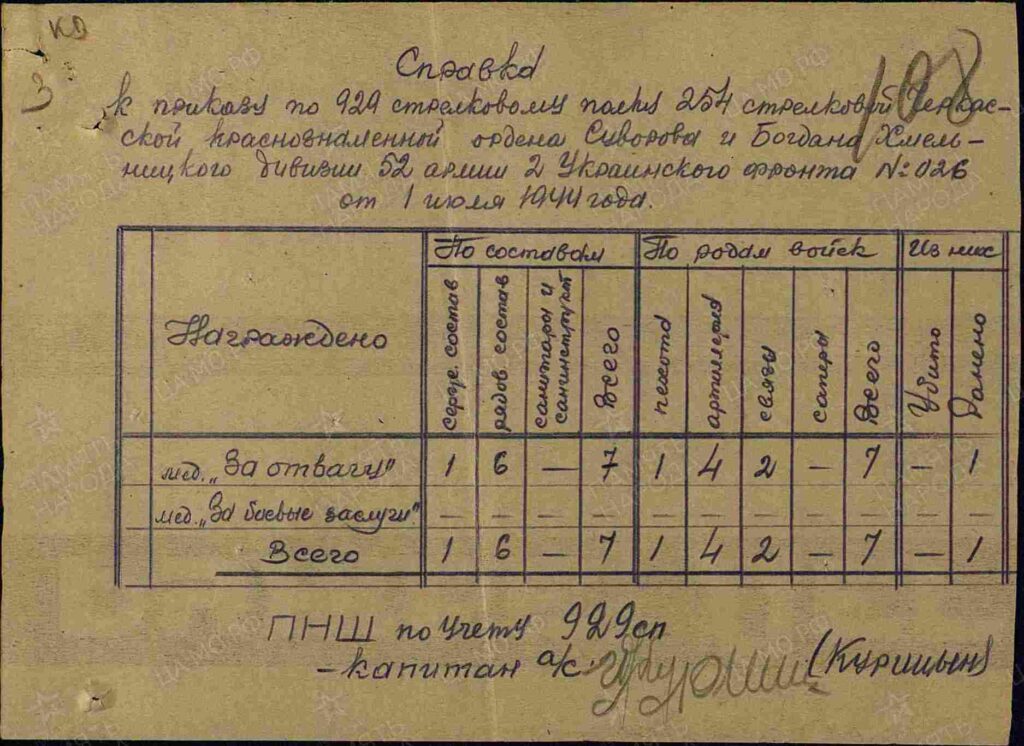 КД
3
108
Справка
к приказу по 929 стрелковому полку 254 стрелковой Черкас-
ской краснознаменной ордена Суворова и Богдана Хмель-
ницкого дивизии 52 армии 2 Украинского фронта №: 026
от 1 июля 1944 года.
По составам По родам войск Из них
Награждено серж. состав рядов. состав санитары и санинструкт Всего пехота артиллерия связь саперы Всего Убито Ранено
мед. „За отвагу" 1 6 — 7 1 4 2 — 7 — 1
мед. „За боевые заслуги" — — — — — — — — — — —
Всего 1 6 — 7 1 4 2 — 7 — 1
ПНШ по учету 929 сп
- капитан а/с (Курицын)